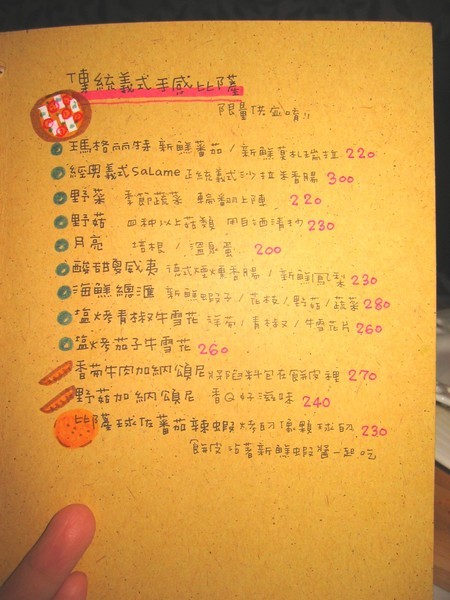 傳統義式手感比薩
限量供應唷!!
瑪格麗特 新鮮蕃茄/新鮮莫札瑞拉 220
經典義式Salame正統義式沙拉米香腸 300
野菜 季節蔬菜 輪翻上陣 220
野菇 四種以上菇類 用白酒清炒 230
月亮 培根/溫泉蛋 200
酸甜夏威夷 德式煙燻香腸/新鮮鳳梨 230
海鮮總匯 新鮮蝦子/花枝/野菇/蔬菜 280
塩烤青椒牛雪花 洋蔥/青椒/牛雪花片 260
塩烤茄子牛雪花 260
香蔥牛肉加納頌尼 將餡料包在餅皮裡 270
野菇加納頌尼 香Q好滋味 240
比薩球佐蕃茄辣蝦 烤的像顆球的 230
餅皮 沾著新鮮蝦醬一起吃